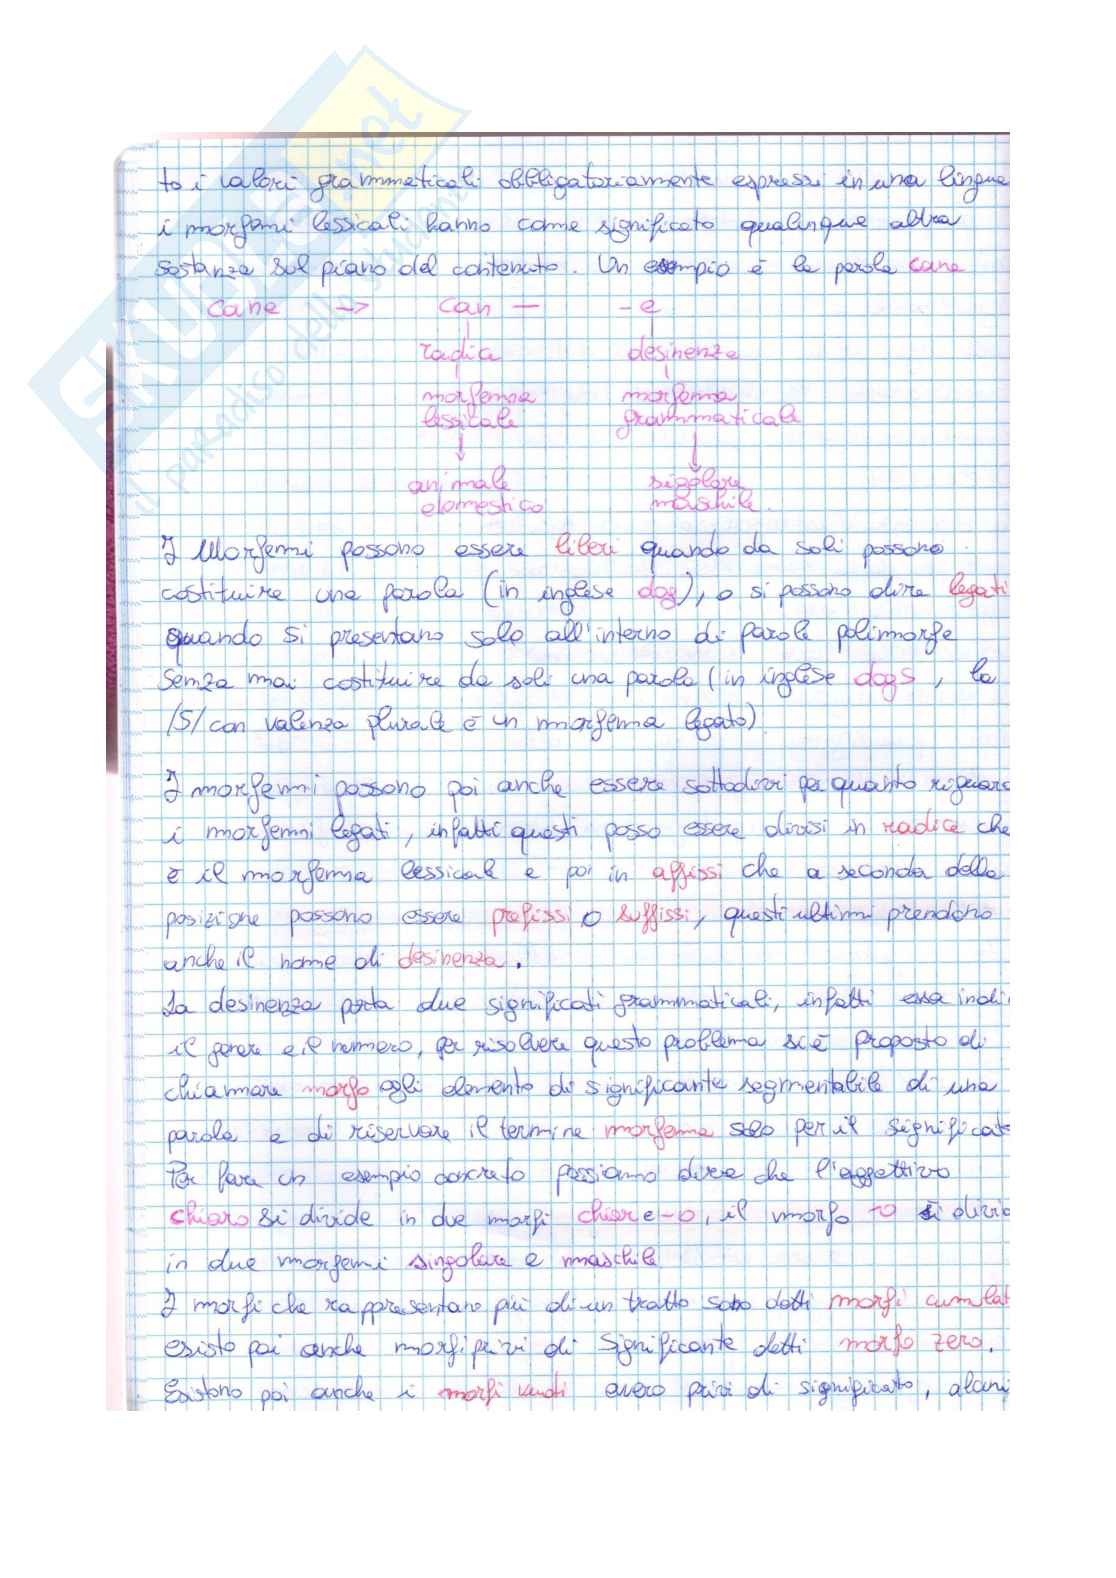 SKUOLA.net
il paradiso dello studente
to i valori grammaticali obbligatoriamente espressi in una lingua
i morfemi lessicali hanno come significato qualunque altra
sostanza sul piano del contenuto. Un esempio è la parola cane
cane -> can — -e
radice desinenza
morfema morfema
lessicale grammaticale
animale singolare
domestico maschile.
I Morfemi possono essere liberi quando da soli possono
costituire una parola (in inglese dog), o si possono dire legati
quando si presentano solo all'interno di parole polimorfe
senza mai costituire da soli una parola (in inglese dogs, la
/S/ con valenza plurale è un morfema legato)
I morfemi possono poi anche essere sottodivisi per quanto riguard
i morfemi legati, infatti questi posso essere divisi in radice che
è il morfema lessicale e poi in affissi che a seconda della
posizione possono essere prefissi o suffissi, questi ultimi prendono
anche il nome di desinenza.
La desinenza porta due significati grammaticali, infatti essa indi
il genere e il numero, per risolvere questo problema si è proposto di
chiamare morfo ogli elemento di significante segmentabile di una
parola e di riservare il termine morfema solo per il significato
Per fare un esempio concreto possiamo dire che l'aggettivo
chiaro si divide in due morfi chiar e -o, il morfo -o si divid
in due morfemi singolare e maschile
I morfi che rappresentano più di un tratto sono detti morfi cumulat
esisto poi anche morfi privi di significante detti morfo zero.
Esistono poi anche i morfi vuoti ovvero privi di significato, alcuni